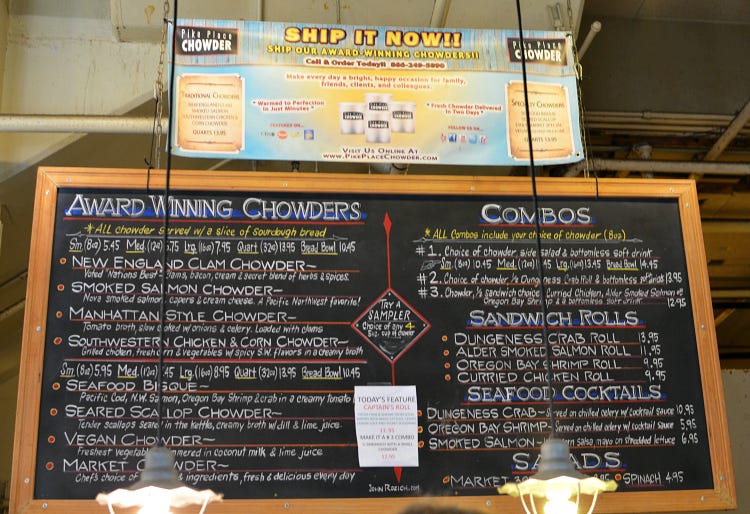 Pike Place
CHOWDER
SHIP IT NOW!!
SHIP OUR AWARD-WINNING CHOWDERS!!
Call & Order Today!! 866-249-5890
Pike Place
CHOWDER
Make every day a bright, happy occasion for family,
friends, clients, and colleagues.
TRADITIONAL CHOWDERS
NEW ENGLAND CLAM
SMOKED SALMON
SOUTHWESTERN CHICKEN &
CORN CHOWDER
QUARTS 13.95
"Warmed to Perfection
in Just Minutes"
"Fresh Chowder Delivered
in Two Days"
SPECIALTY CHOWDERS
QUARTS 13.95
FOLLOW US ON
VISIT US ONLINE AT
WWW.PIKEPLACECHOWDER.COM
AWARD WINNING CHOWDERS
*ALL chowder served w/ a slice of sourdough bread
Sm (8oz) 5.45 Med. (12oz) .75 Lrg. (16oz) 7.95 Quart (32oz) 13.95 Bread Bowl 10.45
NEW ENGLAND CLAM CHOWDER~
Voted "Nations Best" ~ clams, bacon, cream & secret blend of herbs & spices.
SMOKED SALMON CHOWDER~
Nova smoked salmon, capers & cream cheese. A Pacific Northwest favorite!
MANHATTAN STYLE CHOWDER~
Tomato broth, slow cooked w/ onions & celery. Loaded with clams
SOUTHWESTERN CHICKEN & CORN CHOWDER~
Grilled chicken, fresh corn & vegetables w/ spicy S.W. flavors in a creamy broth
Sm (8oz) 5.95 Med. (12oz) .45 Lrg. (16oz) 8.95 Quart (32oz) 13.95 Bread Bowl 10.95
SEAFOOD BISQUE~
Pacific Cod, N.W. Salmon, Oregon Bay Shrimp & crab in a creamy tomato
SEARED SCALLOP CHOWDER~
Tender scallops seared in the kettle, creamy broth w/ dill & lime juice.
VEGAN CHOWDER~
Freshest vegetables simmered in coconut milk & lime juice
MARKET CHOWDER~
Chef's choice of & ingredients, fresh & delicious every day
TRY A
SAMPLER
Choice of any 4
5oz. cup of chowder
TODAY'S FEATURE
CAPTAIN'S ROLL
13.95
MAKE IT A # 3 COMBO
12.95
JOHN ROZICH.com
COMBOS
*ALL Combos include your choice of chowder (8oz)
#1. Choice of chowder, side salad & bottomless soft drink
Sm. (8oz) 13.45 Med. (12oz) .45 Lrg. (16oz) 13.45 Bread Bowl 14.45
#2. Choice of chowder, 1/2 Dungeness Crab Roll & bottomless soft drink 13.95
#3. Chowder, 1/2 sandwich choice Curried Chicken, Alder Smoked Salmon or
Oregon Bay Shrimp & a bottomless soft drink 12.95
SANDWICH ROLLS
DUNGENESS CRAB ROLL 13.95
ALDER SMOKED SALMON ROLL 11.95
OREGON BAY SHRIMP ROLL 9.95
CURRIED CHICKEN ROLL 9.95
SEAFOOD COCKTAILS
DUNGENESS CRAB~ Served on chilled celery w/ cocktail sauce 10.95
OREGON BAY SHRIMP~ Served on chilled celery w/ cocktail sauce 5.95
SMOKED SALMON~ salsa mayo on shredded lettuce 6.95
SALADS
MARKET .95 SPINACH 4.95